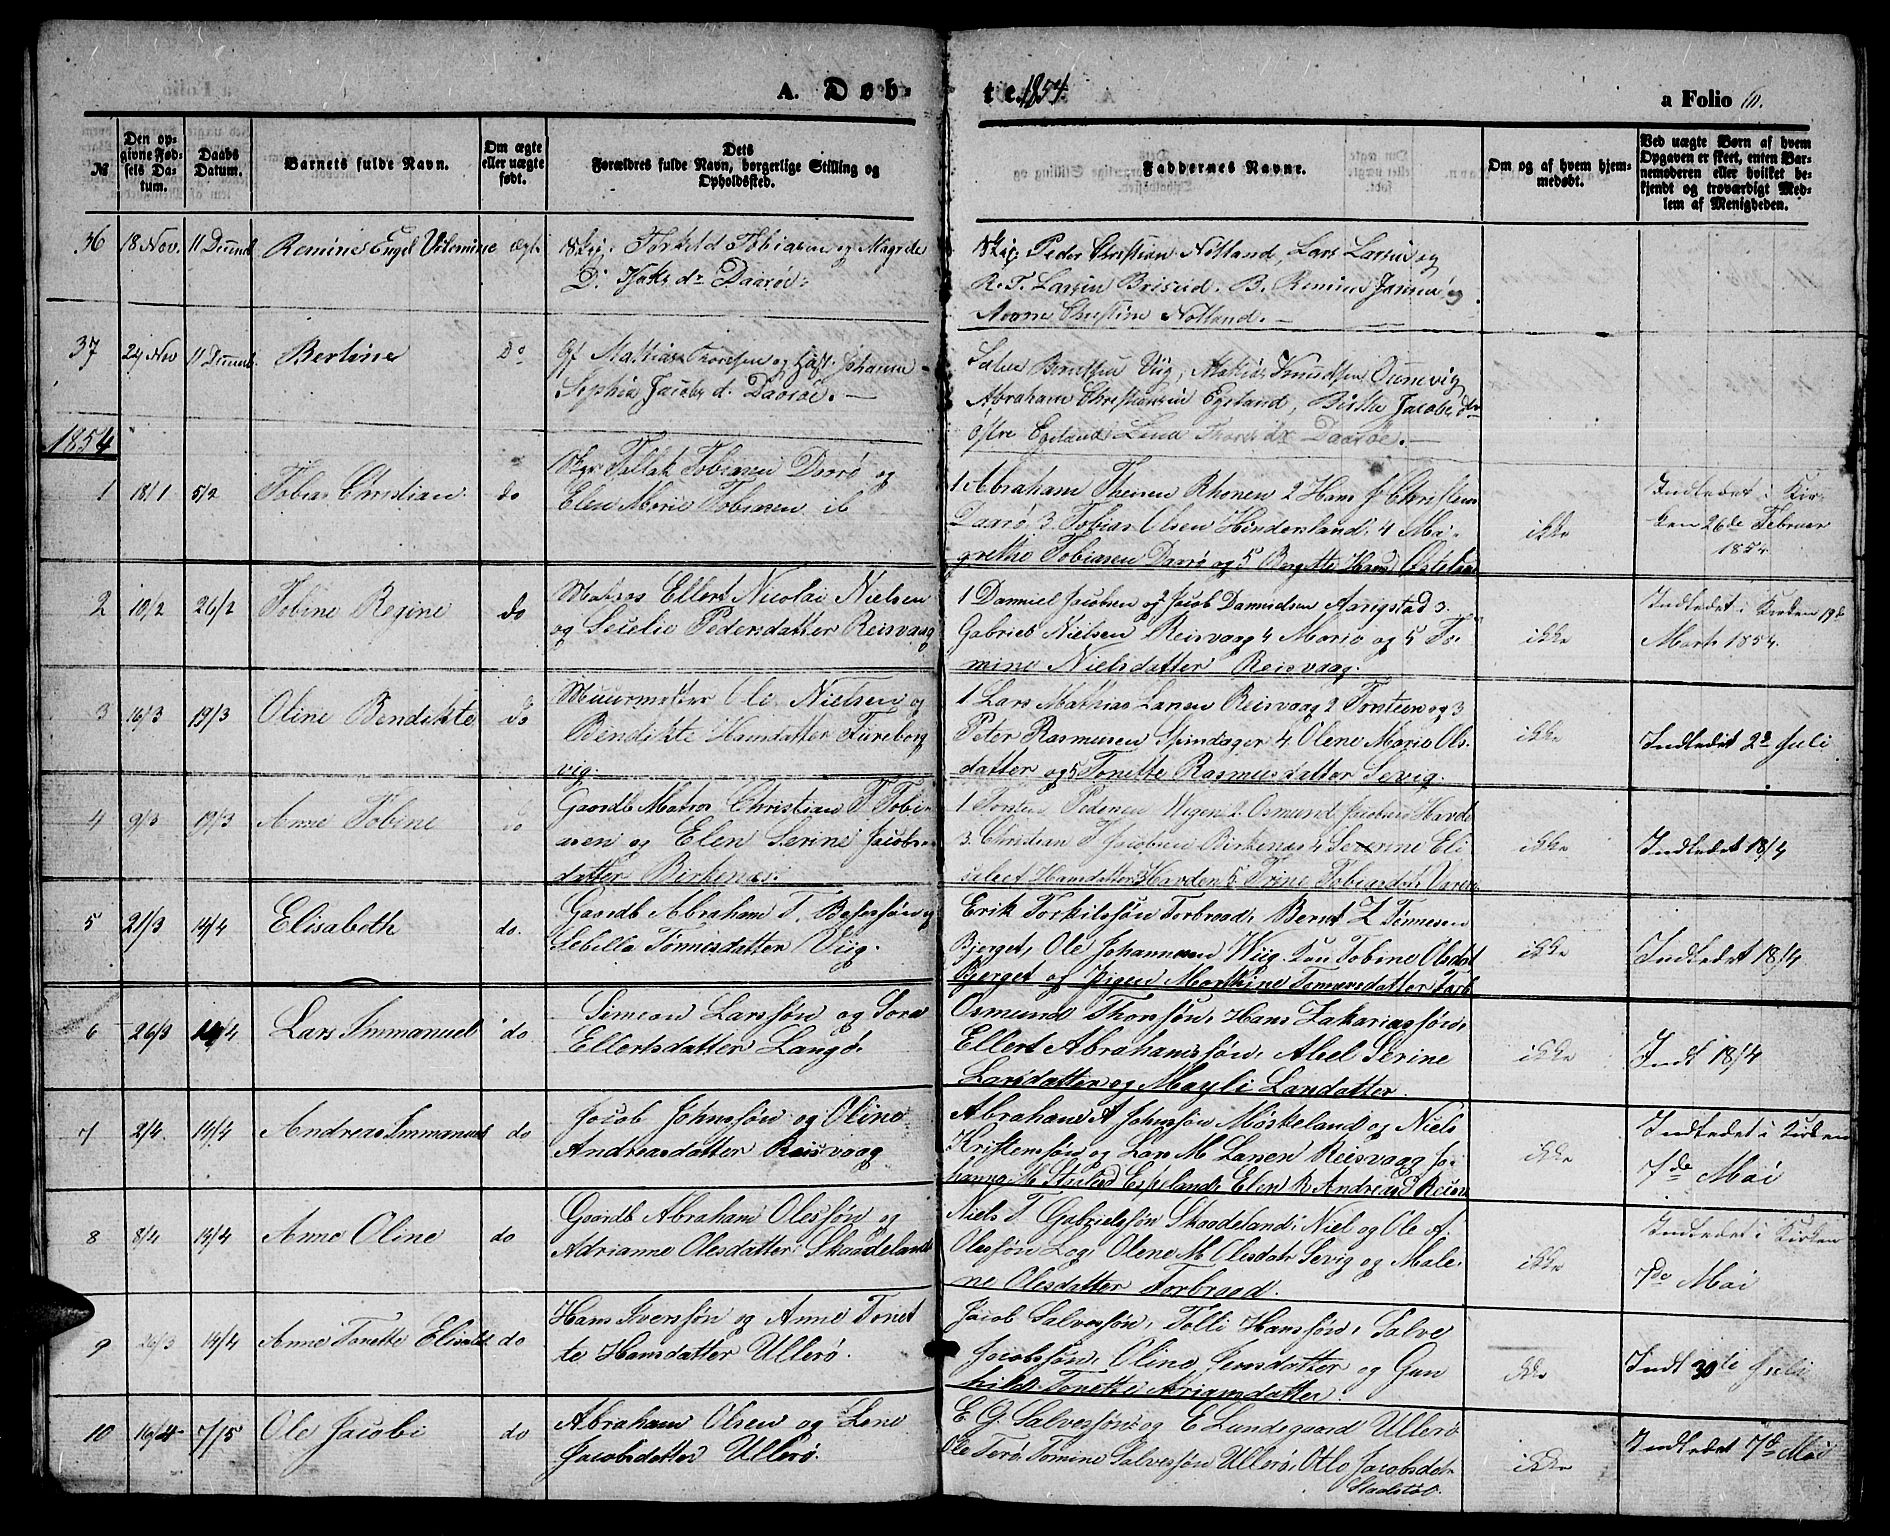 A. Døb-
te. 1854.
a Folio
№
Den op-
givne Fød-
sels Da-
tum.
Daabs
Datum.
Barnets fulde Navn.
Om ægte
eller uægte
født.
Dets
Forældres fulde Navn, borgerlige Stilling og
Opholdssted.
Faddernes Navne.
Om og af hvem hjem-
medøbt.
Ved uægte Børn af hvem
Opgaven er skeet, enten Bar-
nemoderen eller hvilket be-
kjendt og troværdigt Med-
lem af Menigheden.
36 18 Nov. 11 Decemb Romine Engel Vilomine ægt
Torkild Tobiasen og Magrde
D: Isaks dr Daarøe:
Peder Christian Notland, Lars Larsen og
R. T. Larsen B. Romine
Anne Christine Notland. —
37 24 Nov 11 Decemb Berline Do
Gf Mathias Thorsen og Johanne
Sophie Jacobs d. Daarøe. —
Salve Berntsen Viig, Mathias Knudsen Ounevig
Abraham Christiansen Egeland, Birthe Jacobs dtr
Østre Egeland Lina Thors dr Daarøe. —
1854
1 18/1 5/2 Tobias Christian do
Tallak Tobiasen Daarø og
Elen Marie Tobiasen ib
1 Abraham Theisen Rhonen 2 Hans J Christens
Daarø 3. Tobias Olsen Hinderland: 4 Ma-
grethe Tobiasen Daarø og 5 Bergitte Hans
ikke
Indledet i Kir-
ken 26de Februar
1854
2 10/2 26/2 Tobine Regine do
Matros Ellert Nicolai Nielsen
og Secelie Pedersdatter Reisvaag
1 Danniel Jacobsen og 2 Jacob Danielsen Aarigstad 3.
Gabriel Nielsen Reisvaag 4 Marie og 5 To-
mine Nielsdatter Reisvaag.
ikke
Indledet i Kirken 19de
Marts 1854.
3 16/3 19/3 Oline Bendikte do
Muurmester Ole Nielsen og
Bendikte Hansdatter Fureborg
vig.
1 Lars Mathias Larsen Reisvaag 2 Torsteen og 3
Peter Rasmusen Spindager 4. Olene Marie Ols-
datter og 5 Tonette Rasmusdatter Sevig.
ikke
Indledet 2de Juli
4 9/3 19/3 Anne Tobine do
Gaardb Matros Christian T Tobi
asen og Elen Serine Jacobs-
datter Birkenes:
1. Torsten Pedersen Vigen 2. Osmund Jacobsen
3. Christian T Jacobsen Birkenes 4 Severine Eli-
sabet Hansdatter 5. Trine Tobiasdatr
ikke
Indledet 18/4
5 21/3 14/4 Elisabeth do.
Gaardb Abraham T. og
Sebille Tønnisdatter Viig.
Erik Torkilsøn Torbraad, Bernt Z Tønnesen
Bjerget, Ole Johannesen Wiig. Kon Tobine Olsdat
Bjerget og Pigen
ikke
Indledet 18/4
6 26/3 14/4 Lars Immanuel do
Simeon Larssøn og Sara
Ellertsdatter Langø.
Osmund Thorssøn, Hans Zakariassøn,
Ellert Abrahamssøn, Abel Serine
Larsdatter og Mayli Larsdatter.
ikke
Indt 18/4
7 2/4. 14/4 Andreas Immanuel do
Jacob Johnssøn og Oline
Andreasdatter Reisvaag
Abraham A Johnssøn Møskeland og Niels
Kristenssøn og Lars M Larsen Reisvaag Jo-
hanna M Espeland, Elen R Andreasd
ikke
Indledet i Kirken
7de Mai
8 8/4 14/4 Anne Oline do
Gaardb Abraham Olessøn og
Adrianne Olesdatter Skaadeland
Niels T. Gabrielssøn Skaadeland: Niel og Ole A.
Olessøn Log Olene M. Olesdatr Sevig og Male-
ne Olesdatter Torbraad.
ikke
Indledet i Kirken
7de Mai
9 20/3 14/4 Anne Tonette do
Hans Iverssøn og Anne Tonet
te Hansdatter Ullerø.
Jacob Salvessøn, Tolli Hanssøn, Salve
Jacobssøn, Oline Jensdatter og Gun
hild Tonette Ariansdatter.
ikke
Indt 30te Juli
10 16/4 7/5 Ole Jacobi do
Abraham Olsen og Lene
Jacobsdatter Ullerø.
E. G. Salvessøn og E Lundegaard Ullerø.
Ole Terø. Tomine Salvessøn Ullerø, Jacobsdatr
ikke
Indledet 7de Mai